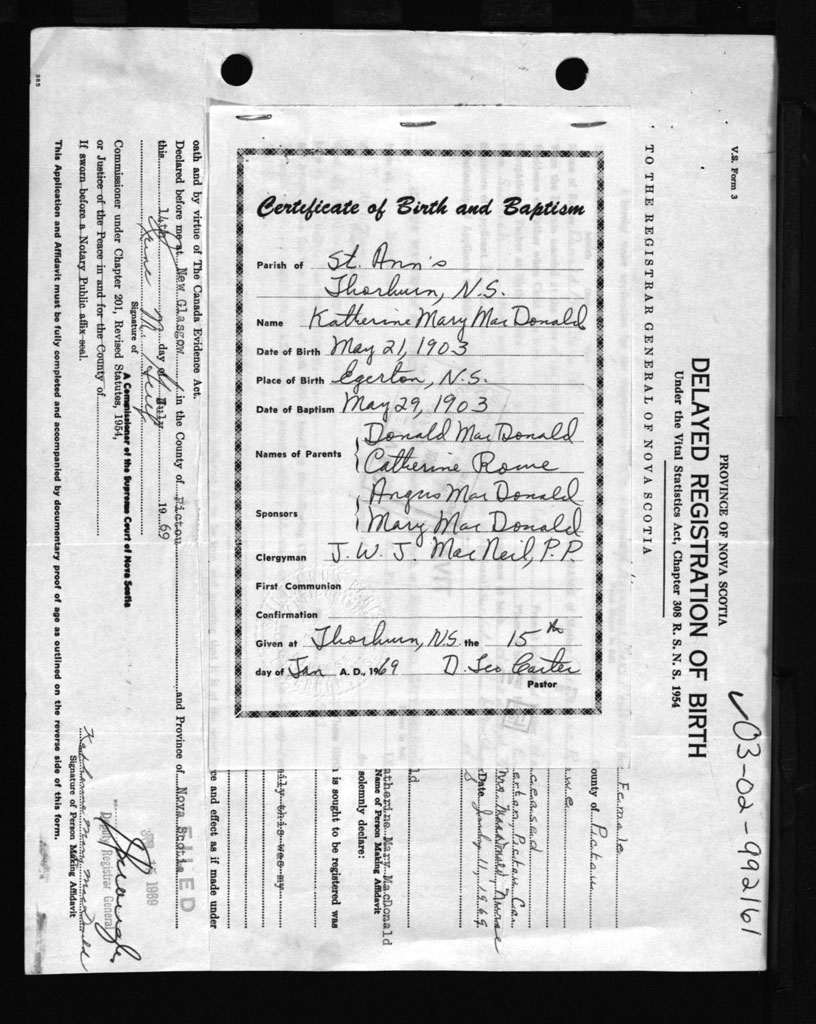 Certificate of Birth and Baptism
Parish of St. Ann's
Thorburn, N.S.
Name Katherine Mary MacDonald
Date of Birth May 21, 1903
Place of Birth Egerton, N.S.
Date of Baptism May 29, 1903
Names of Parents { Donald MacDonald
Catherine Rowe
Sponsors { Angus MacDonald
Mary MacDonald
Clergyman J. W. J. MacNeil, P.P.
First Communion
Confirmation
Given at Thorburn, N.S. the 15th
day of Jan A. D., 1969 D. Leo Carter
Pastor
V.S. Form 3
PROVINCE OF NOVA SCOTIA
DELAYED REGISTRATION OF BIRTH
Under the Vital Statistics Act, Chapter 308 R. S. N. S. 1954
TO THE REGISTRAR GENERAL OF NOVA SCOTIA
03-02-992161
Female
ounty of Pictou
we
ceased
erton, Pictou Co.
Mrs MacDonald, Nurse
Date 11, 1969
ld
atherine Mary MacDonald
Name of Person Making Affidavit
solemnly declare:
is sought to be registered was
ily this was my
ce and effect as if made under
oath and by virtue of The Canada Evidence Act.
Declared before me at New Glasgow in the County of Pictou and Province of Nova Scotia
this 14th day of July 1969
Signature of
A Commissioner of the Supreme Court of Nova Scotia
Commissioner under Chapter 201, Revised Statutes, 1954,
or Justice of the Peace in and for the County of
If sworn before a Notary Public affix seal.
FILED
15 1969
Deputy Registrar General
Katherine Mary MacDonald
Signature of Person Making Affidavit
This Application and Affidavit must be fully completed and accompanied by documentary proof of age as outlined on the reverse side of this form.